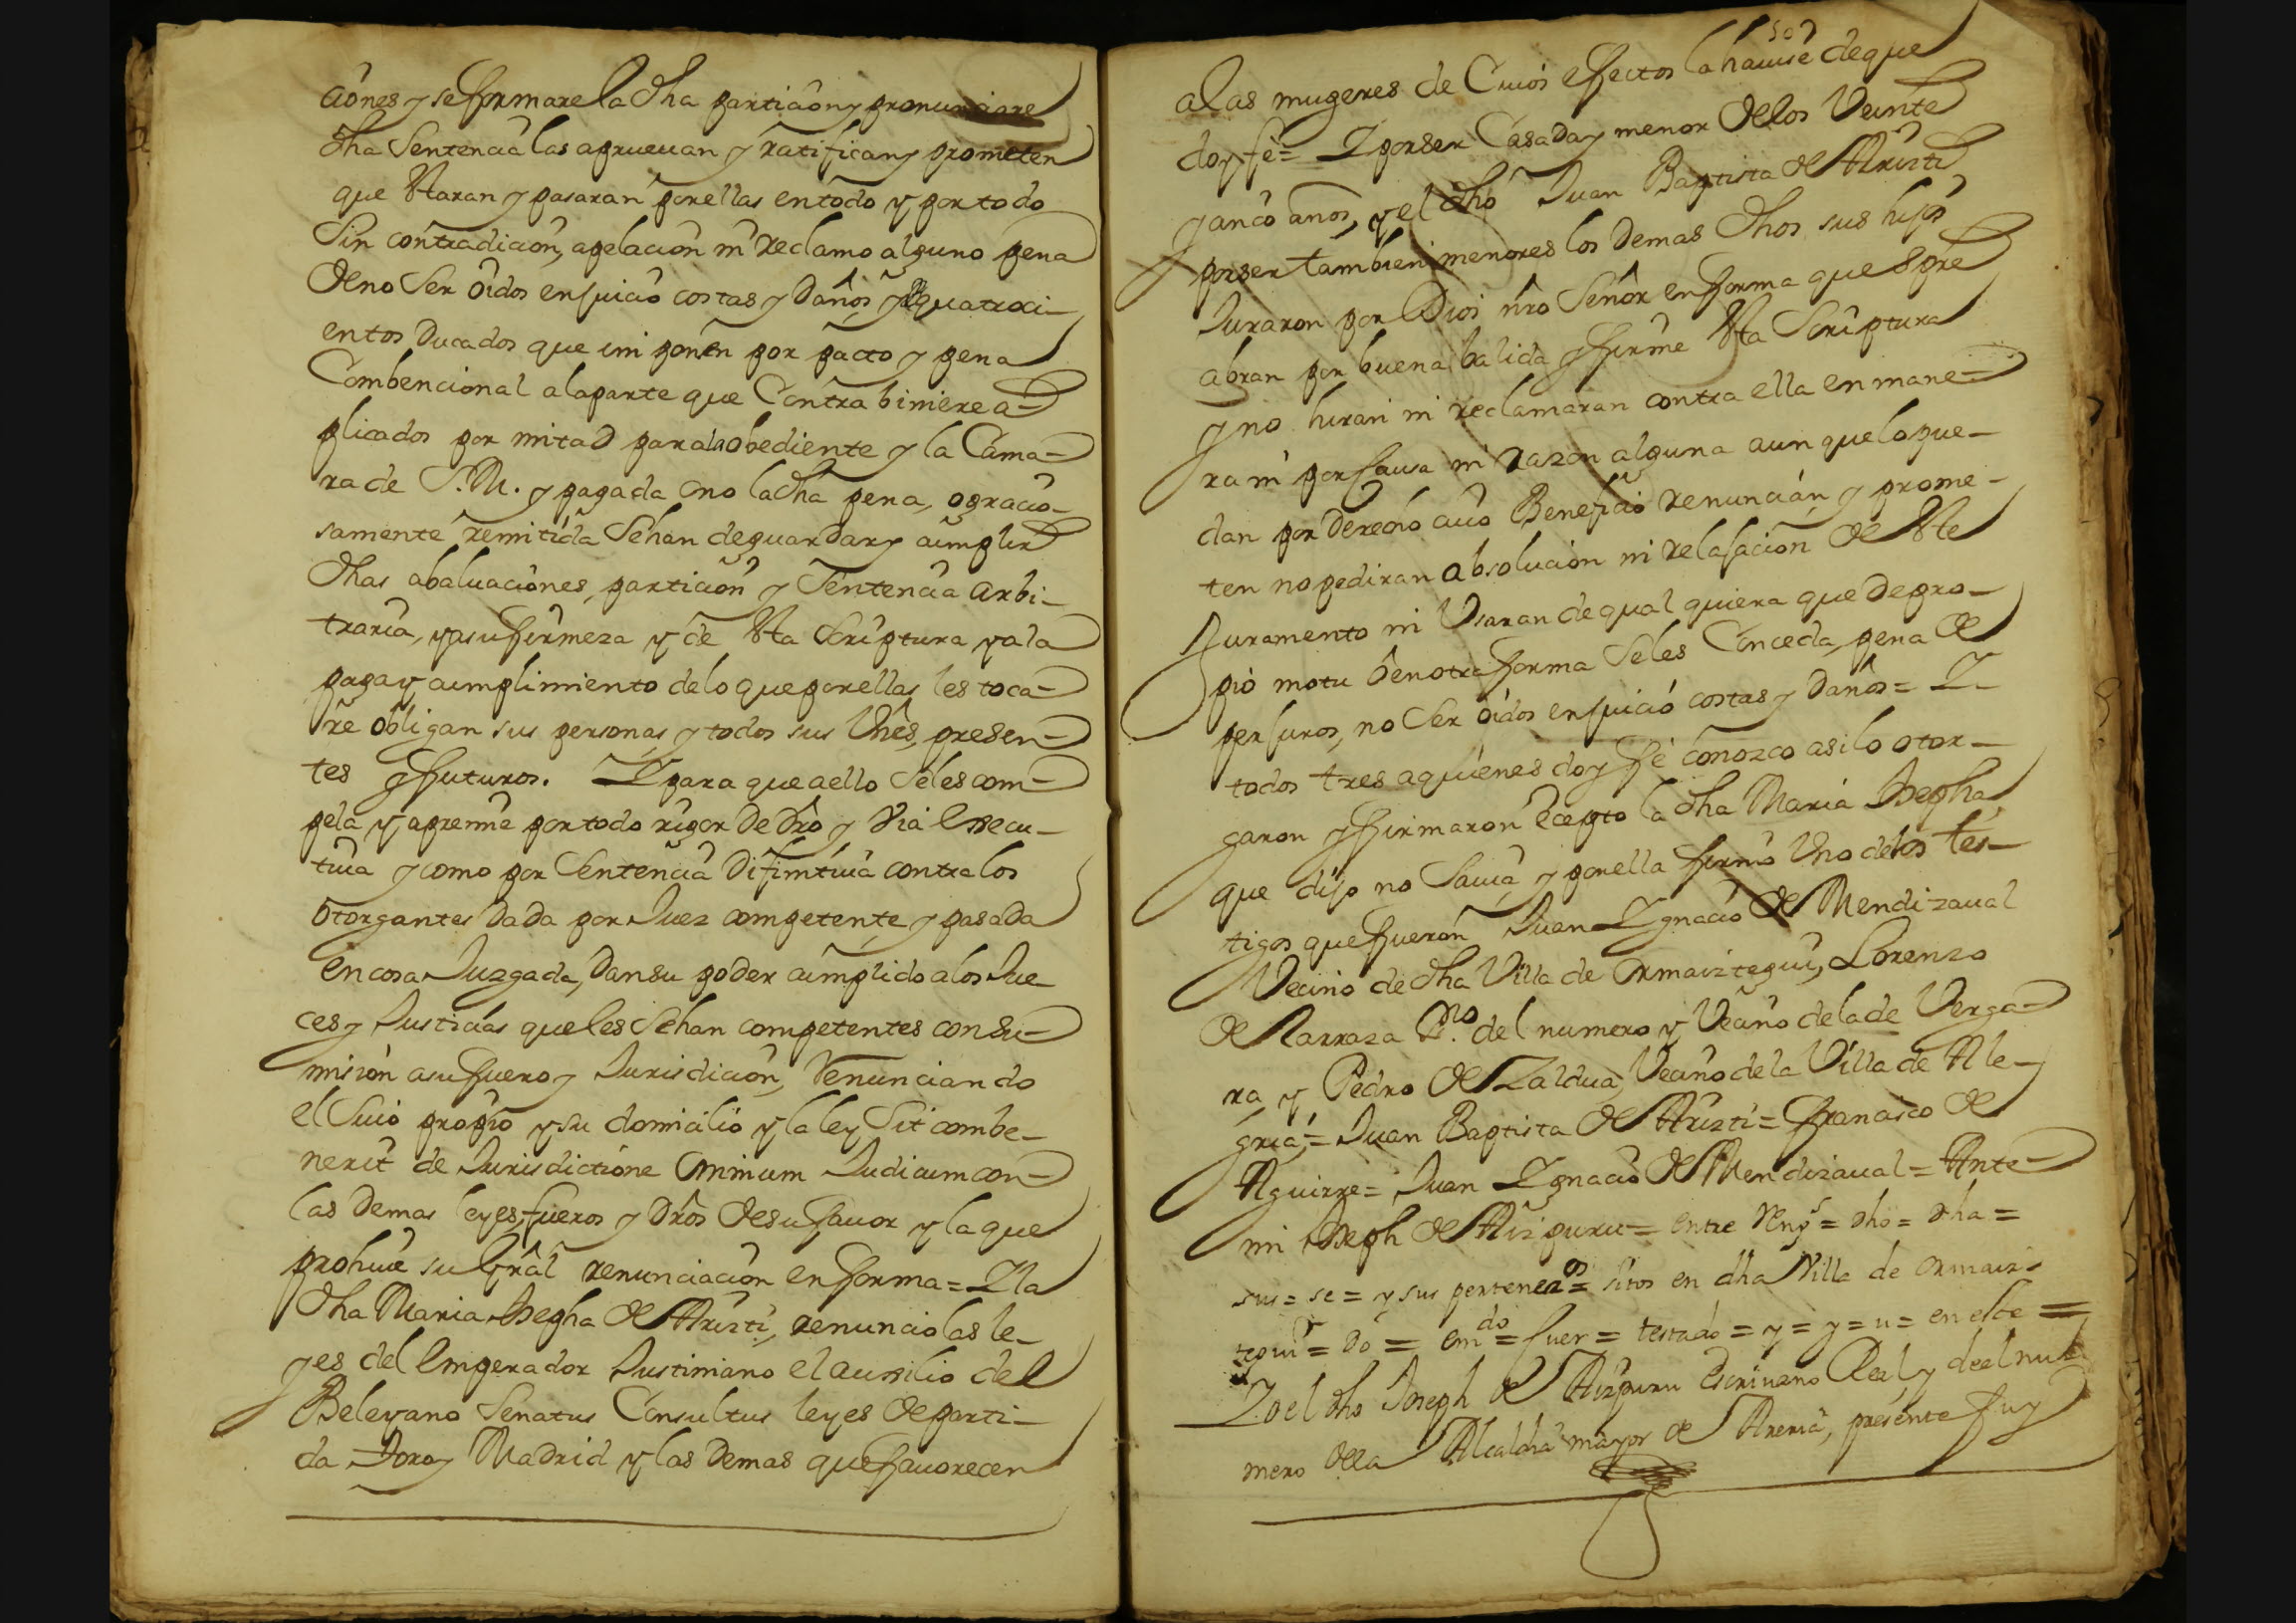 ciones y se formare la dha particion y pronunciare
dha Sentencia las aprueuan y ratifican y prometen
que Staran y pasaran por ellas en todo y por todo
Sin contradicion, apelacion ni reclamo alguno pena
de no Ser oidos en juicio costas y daños y quatroci-
entos Ducados que imponen por pacto y pena
Combencional a la parte que Contrabiniere a-
plicados por mitad para la obediente y la Cama-
ra de S.M. y pagada o no la dha pena, o gracio-
samente remitida Sehan de guardar y cumplir
dhas abaluaciones, particion y Sentencia arbi-
traria, y a su firmeza y de Sta Scriptura, y a la
paga y cumplimiento de lo que por ellas les toca-
re obligan sus personas y todos sus Vnes, presen-
tes y futuros. Y para que a ello Se les com-
pela y apremie por todo rigor de dro y Via Execu-
tiua y como por Sentencia Difinitiua contra los
Otorgantes Dada por Juez competente, y pasada
en cosa Juzgada, Dan su poder cumplido a los Jue-
ces y Justicias que les Sehan competentes con Su-
mision a su fuero y Jurisdicion, Renunciando
el Suio propio y su domicilio y la ley Sit combe-
nerit de Jurisdictione Omnium Judicum con
las Demas leyes, fueros y Dros de su fauor y la que
prohiue su Gral renunciacion en forma = Y la
dha Maria Josepha de Aristi, renuncio las le-
yes del Emperador Justiniano el auxilio del
Beleyano Senatus Consultus leyes de parti-
da Toro y Madrid y las Demas que fauorecen
507
a las mugeres de Cuios efectos la hauise de que
doy fe = Y por ser Casada y menor de los Veinte
y cinco años, y el dho Juan Baptista de Aristi
por ser tambien menores los demas dhos sus hijos
Juraron por Dios nro Señor en forma que Spre
abran por buena balida y firme Sta Scriptura
y no hiran ni reclamaran contra ella en mane-
ra ni por causa ni razon alguna aun que lo pue-
dan por derecho cuio Beneficio renuncian, y prome-
ten no pediran absolucion ni relajacion de Ste
Juramento ni Usaran de qual quiera que de pro-
pio motu o en otra forma Se les Conceda, pena de
perjuros, no Ser oidos en juicio costas y daños = Y
todos tres a quienes doy fe conozco asi lo otor-
garon y firmaron Ecepto la dha Maria Josepha
que dijo no Sauia, y por ella firmo Uno de los tes-
tigos que fueron Juan Ygnacio de Mendizaual
Vecino de dha Villa de Ormaiztegui, Lorenzo
de Narraza Sno. del numero y Vecino de la de Verga-
ra, y Pedro de Zaldua, Vecino de la Villa de Ale-
gria, = Juan Baptista de Aristi = Francisco de
Aguirre = Juan Ygnacio de Mendizaual = Ante
mi Joseph de Aizpuru = entre Rengs = dho = dha =
sus = se = y sus pertenecs = sitos en dha Villa de Ormaiz-
tegui = do = emdo = fuer = testado = y = y = u = en este =
Yo el dho Joseph de Aizpuru Escriuano Real y de el nu-
mero de la Alcaldia mayor de Areria, presente fuy